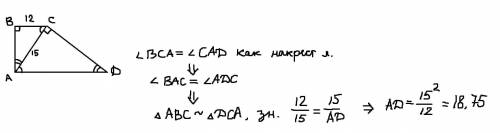 B 12 C
15
A D
∠BCA = ∠CAD как накрест л.
⇓
∠BAC = ∠ADC
⇓
△ABC ~ △DCA, зн. 12/15 = 15/AD ⇒ AD = 15²/12 = 18,75